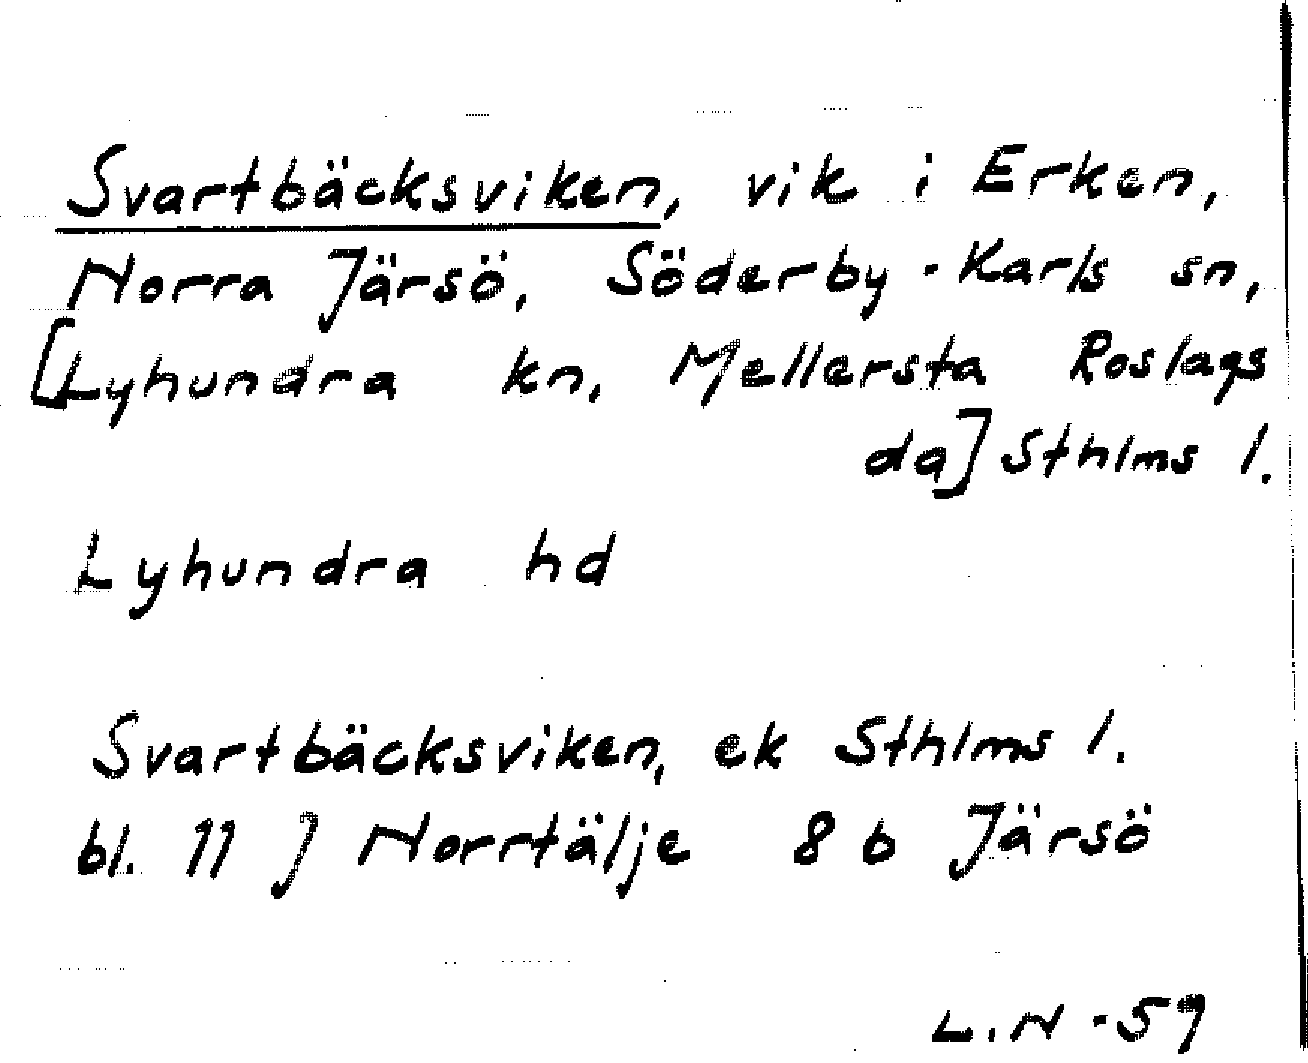 Svartbäcksviken, vik i Erken,
Norra Järsö, Söderby-Karls sn,
[Lyhundra kn, Mellersta Roslags
da] Sthlms l.
Lyhundra hd
Svartbäcksviken, ek Sthlms l.
bl. 11 J Norrtälje 8 b Järsö
L.N -59